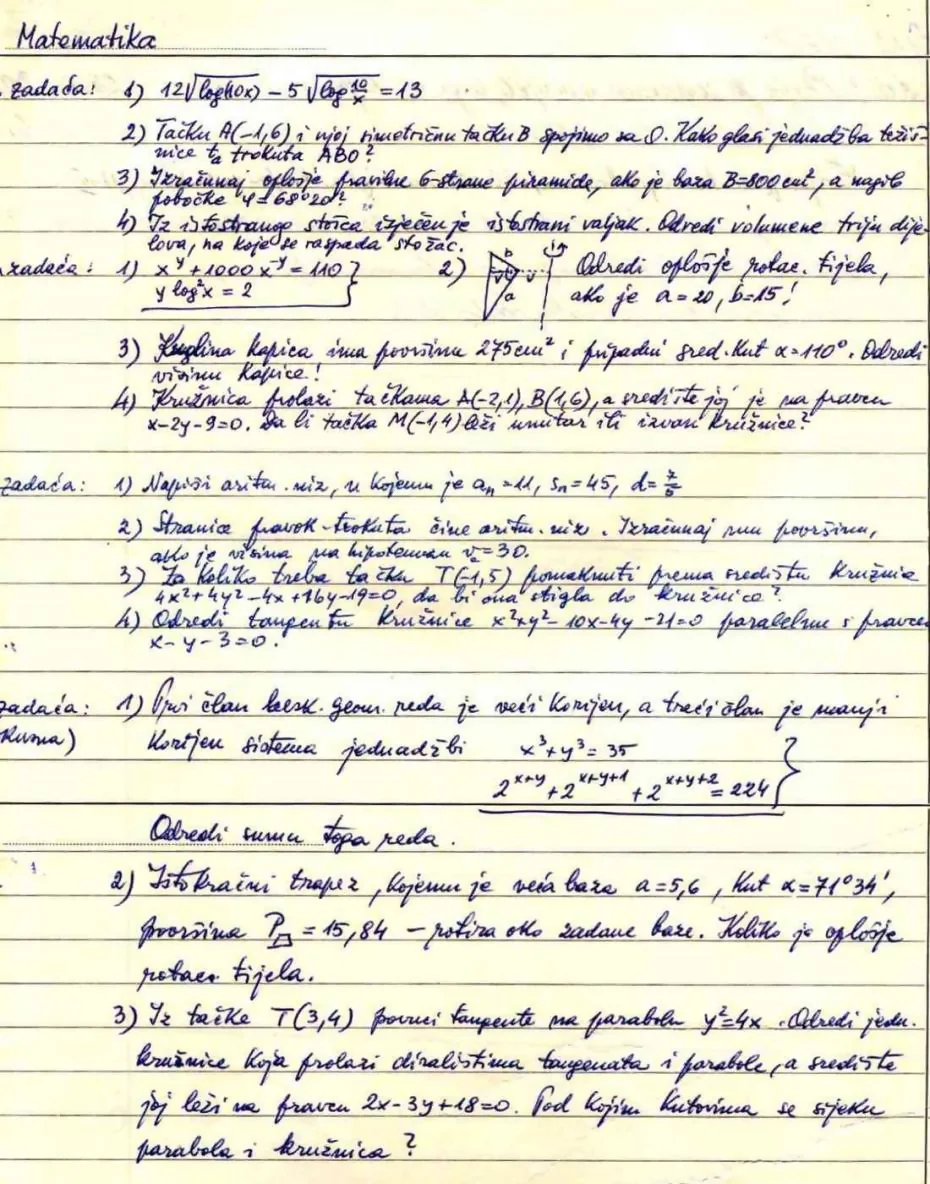 Matematika
zadaća: 1) 12√log(10x) - 5√log 10/x = 13
2) Tačku A(-1,6) i njoj simetričnu tačku B spojimo sa O. Kako glasi jednadžba težiš-
nice ta trokuta ABO?
3) Izračunaj oplošje pravilne 6-strane piramide, ako je baza B=800cm², a nagib
pobočke φ=68°20'?
4) Iz istostranog stošca izječen je istostrani valjak. Odredi volumene triju dije-
lova, na koje se raspada stožac.
zadaća: 1) x^y + 1000 x^-y = 110 }
y log²x = 2
2) b v a Odredi oplošje rotac. tijela,
ako je a=20, b=15!
3) Kuglina kapica ima površinu 275cm² i pripadni sred. kut α=110°. Odredi
visinu kapice!
4) Kružnica prolazi tačkama A(-2,1), B(1,6), a središte joj je na pravcu
x-2y-9=0. Da li tačka M(-1,4) leži unutar ili izvan kružnice?
zadaća: 1) Napiši aritm. niz, u kojemu je an=11, sn=45, d=7/5
2) Stranice pravok-trokuta čine aritm. niz. Izračunaj mu površinu,
ako je visina na hipotenuzu v=30.
3) Za koliko treba tačku T(-1,5) pomaknuti prema središtu kružnice
4x²+4y²-4x+16y-19=0, da bi ona stigla do kružnice?
4) Odredi tangentu kružnice x²+y²-10x-4y-21=0 paralelnu s pravcem
x-y-3=0.
zadaća: 1) Prvi član besk. geom. reda je veći korijen, a treći član je manji
korijen sistema jednadžbi x³+y³=35
2^x+y + 2^x+y+1 + 2^x+y+2 = 224 }
Odredi sumu toga reda.
2) Istokračni trapez, kojemu je veća baza a=5,6, kut α=71°34',
površina P=15,84 - rotira oko zadane baze. Koliko je oplošje
rotac. tijela.
3) Iz tačke T(3,4) povuci tangente na parabolu y²=4x. Odredi jedn.
kružnice koja prolazi diralištima tangenata i parabole, a središte
joj leži na pravcu 2x-3y+18=0. Pod kojim kutovima se sijeku
parabola i kružnica?